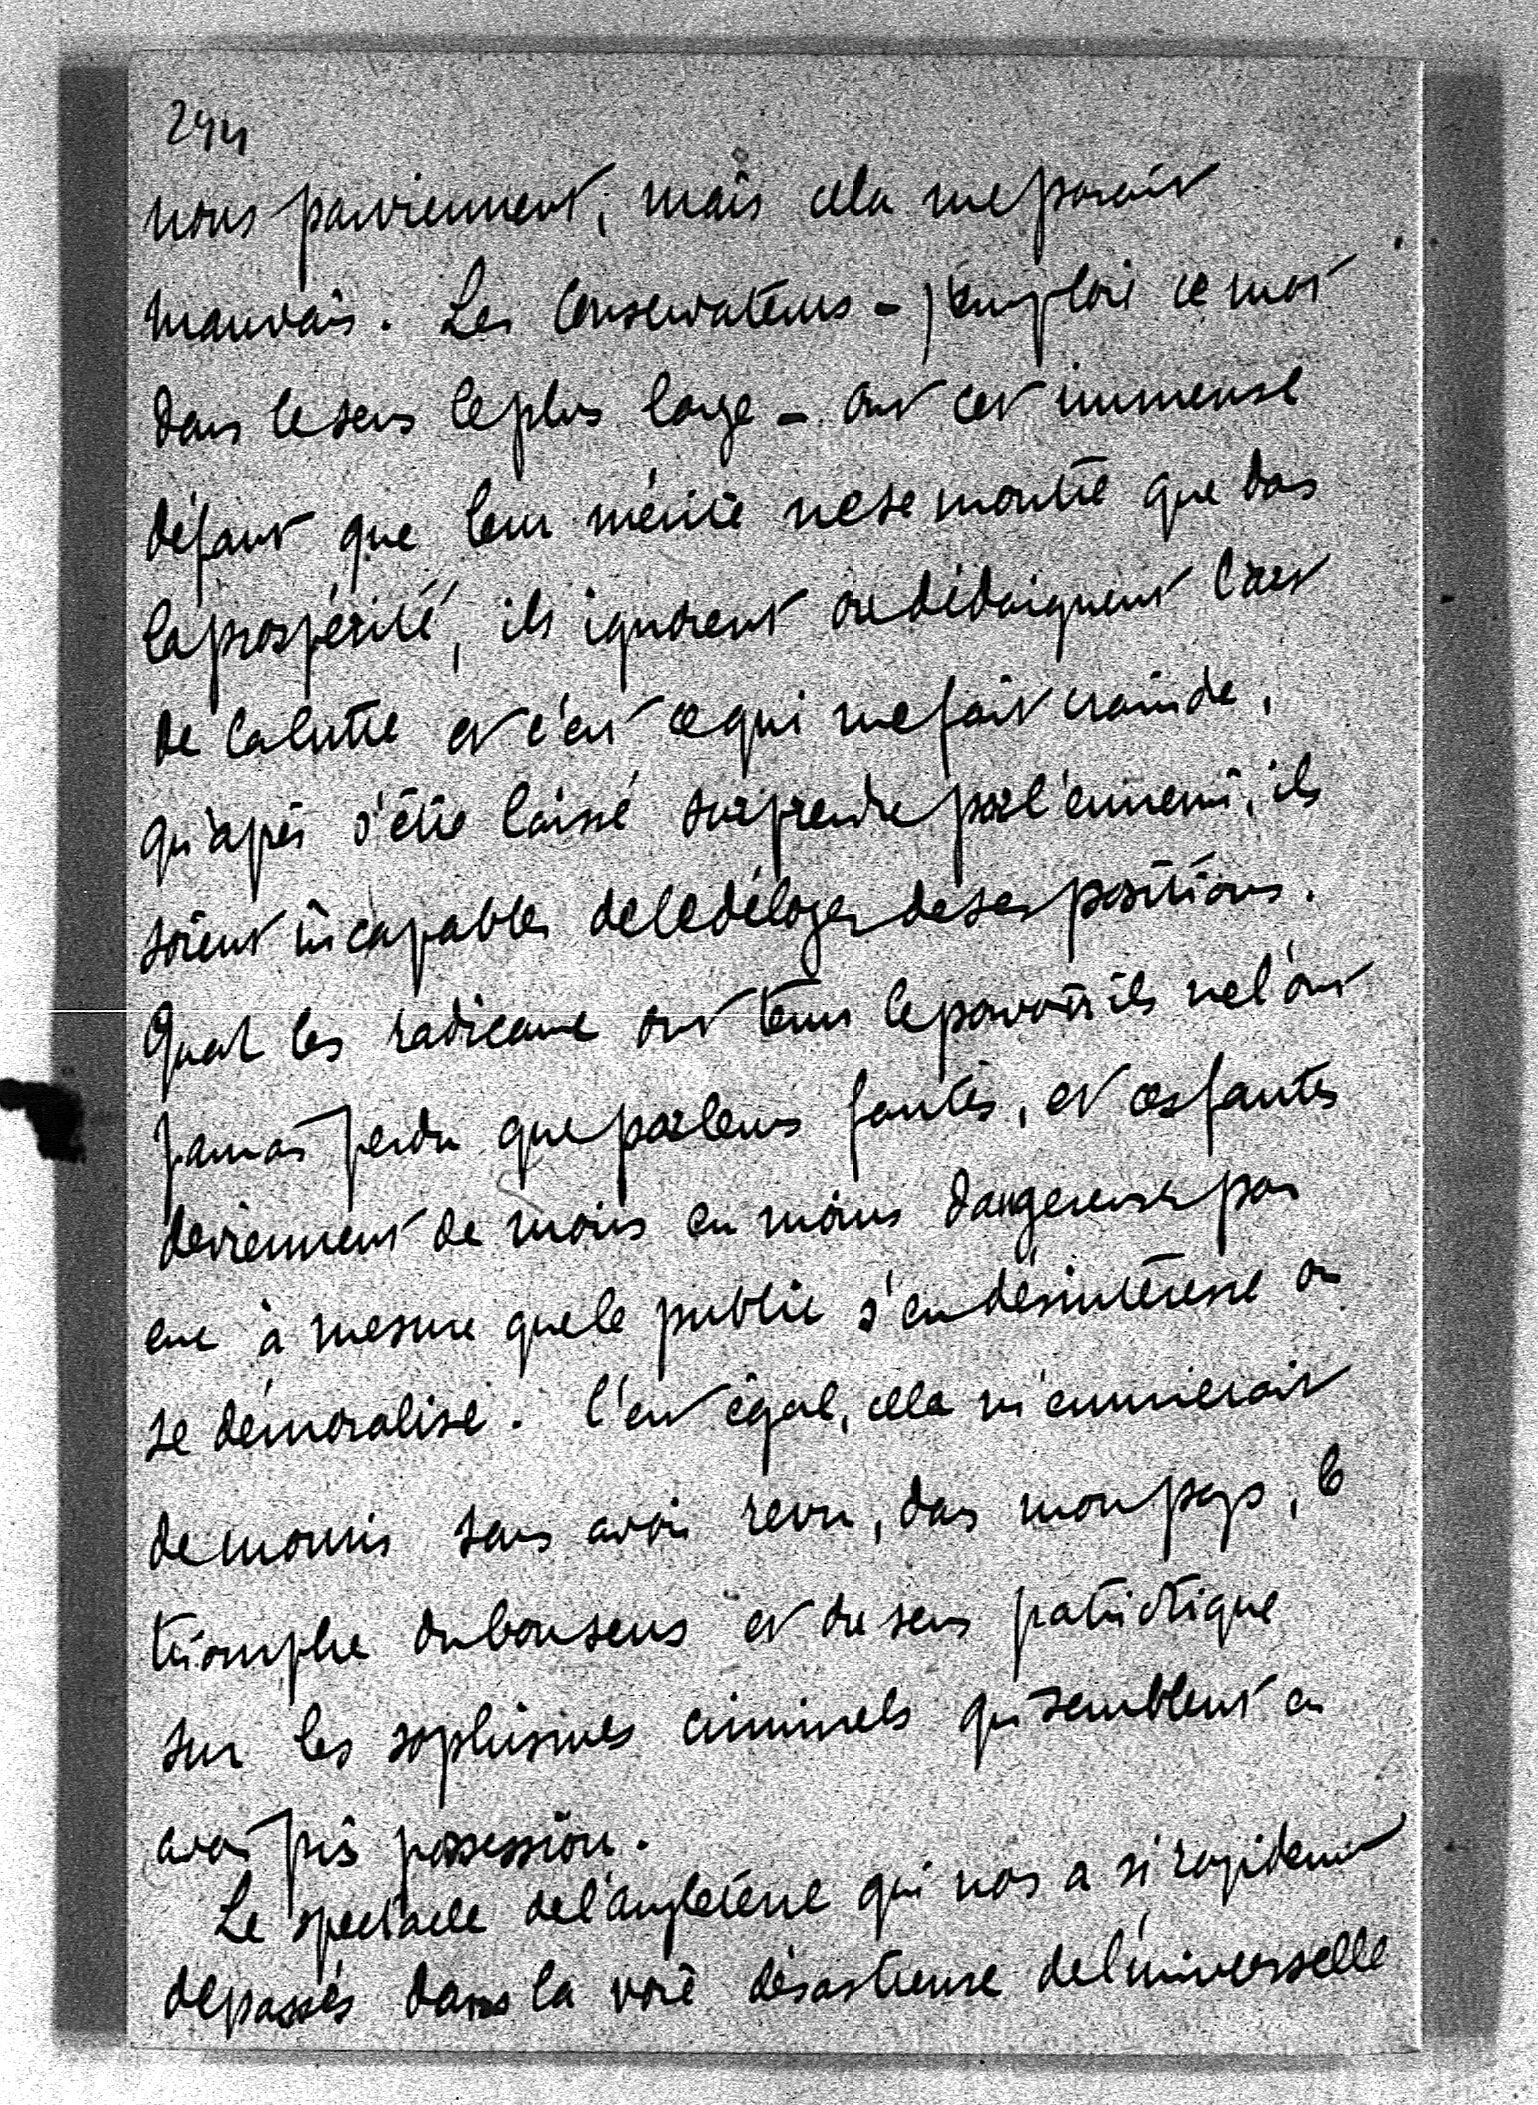 244
nous parviennent, mais cela me paraît
mauvais. Les Conservateurs - j'emploie ce mot
dans le sens le plus large - ont cet immense
défaut que leur mérite ne se montre que dans
la prospérité, ils ignorent ou dédaignent l'art
de la lutte et c'est ce qui me fait craindre,
qu'après s'être laissé surprendre par l'ennemi, ils
soient incapables de le déloger de ses positions.
Quand les radicaux ont tenu le pouvoir ils ne l'ont
jamais perdu que par leurs fautes, et ces fautes
deviennent de moins en moins dangereuses pour
eux à mesure que le public s'en désintéresse ou
se démoralise. C'est égal, cela m'ennuierait
de mourir sans avoir revu, dans mon pays, le
triomphe du bon sens et du sens patriotique
sur les sophismes criminels qui semblent en
avoir pris possession.
Le spectacle de l'Angleterre qui nous a si rapidement
dépassés dans la voie désastreuse de l'universelle